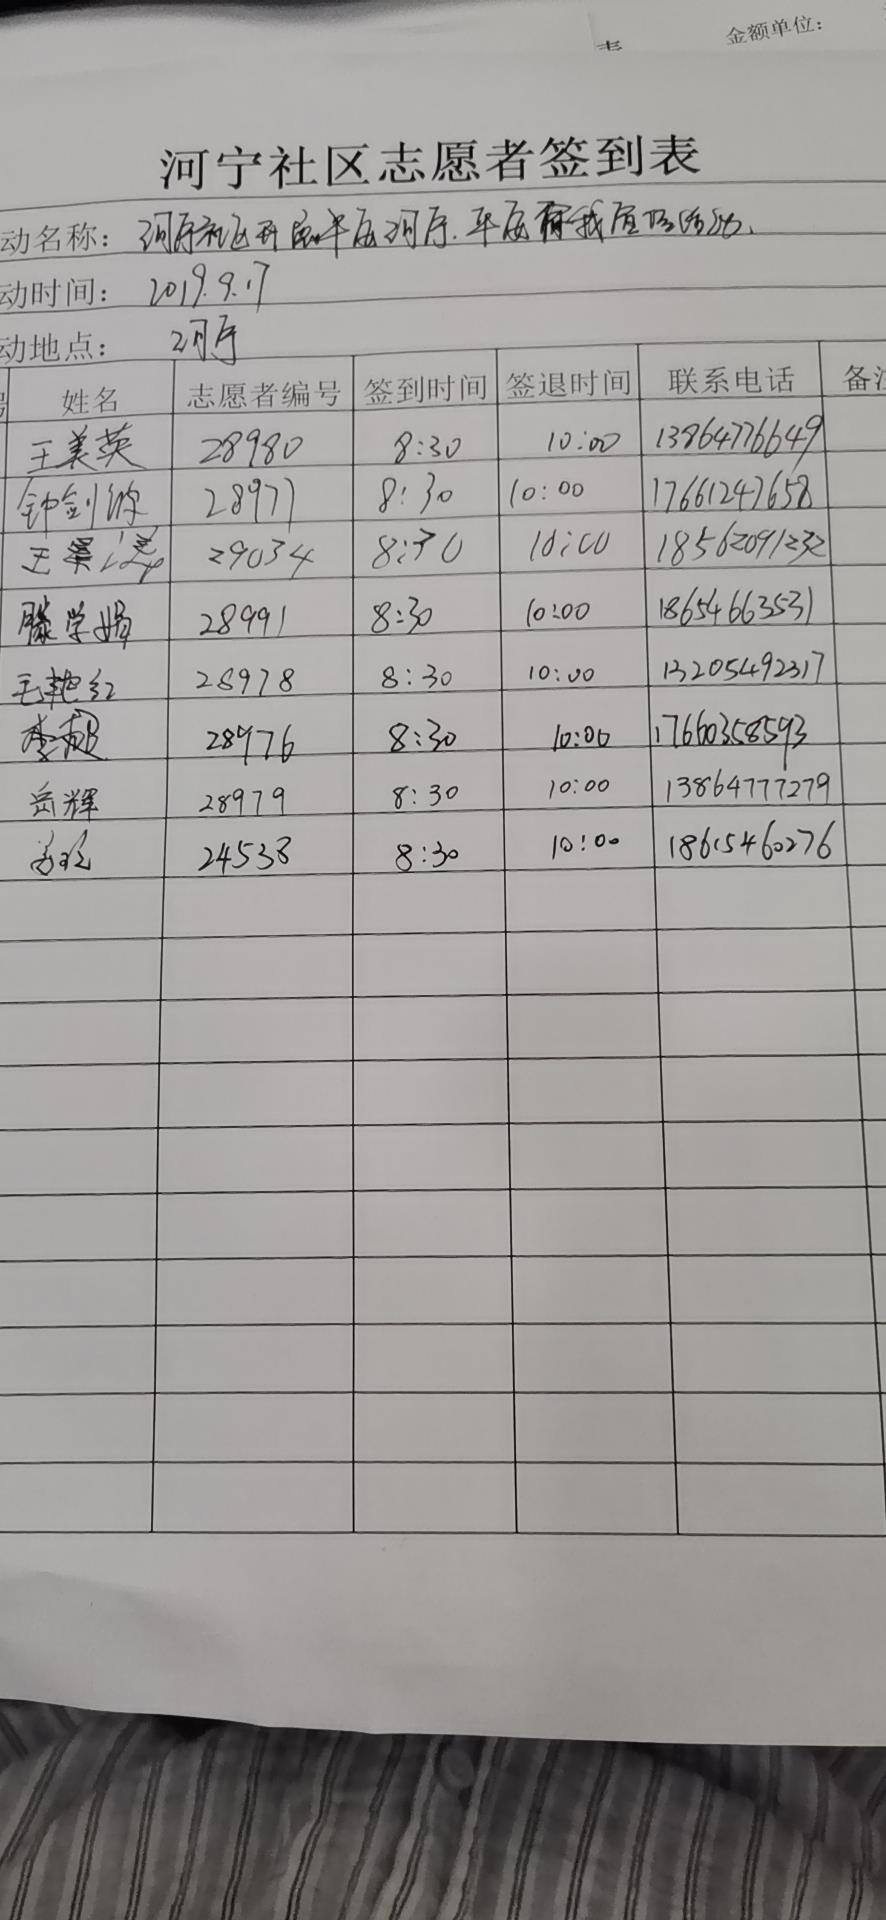 金额单位：
河宁社区志愿者签到表
动名称： 河宁社区开展平安河宁.平安有我宣传活动.
动时间： 2019.9.17
动地点： 河宁
姓名 志愿者编号 签到时间 签退时间 联系电话 备注
王美英 28980 8:30 10:00 13864776649
钟剑波 28977 8:30 10:00 17661247658
王 29034 8:30 10:00 18562091232
滕学娟 28991 8:30 10:00 18654663531
毛艳红 28978 8:30 10:00 13205492317
李超 28976 8:30 10:00 17660358593
岳辉 28979 8:30 10:00 13864777279
24538 8:30 10:00 18615460276